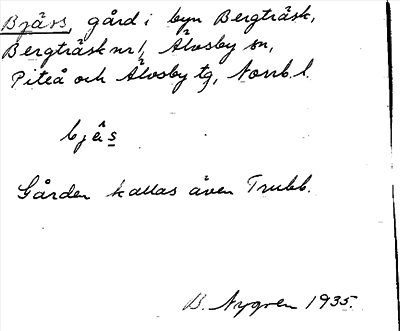 Bjärs, gård i byn Bergträsk,
Bergträsk nr 1, Älvsby sn,
Piteå och Älvsby tg, Norrb. l.
bjês
Gården kallas även Trubb.
B. Nygren 1935.